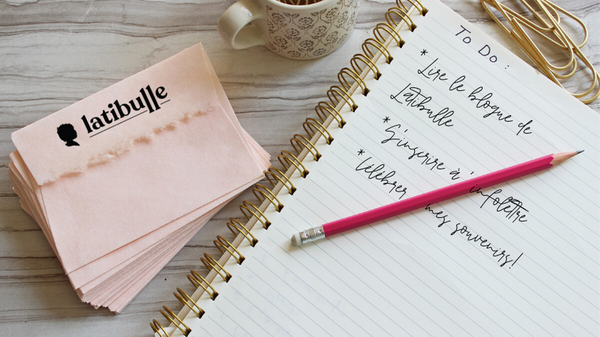 latibulle
To Do :
* Lire le blogue de
Latibulle
* S'inscrire à l'infolettre
* Célébrer mes souvenirs!